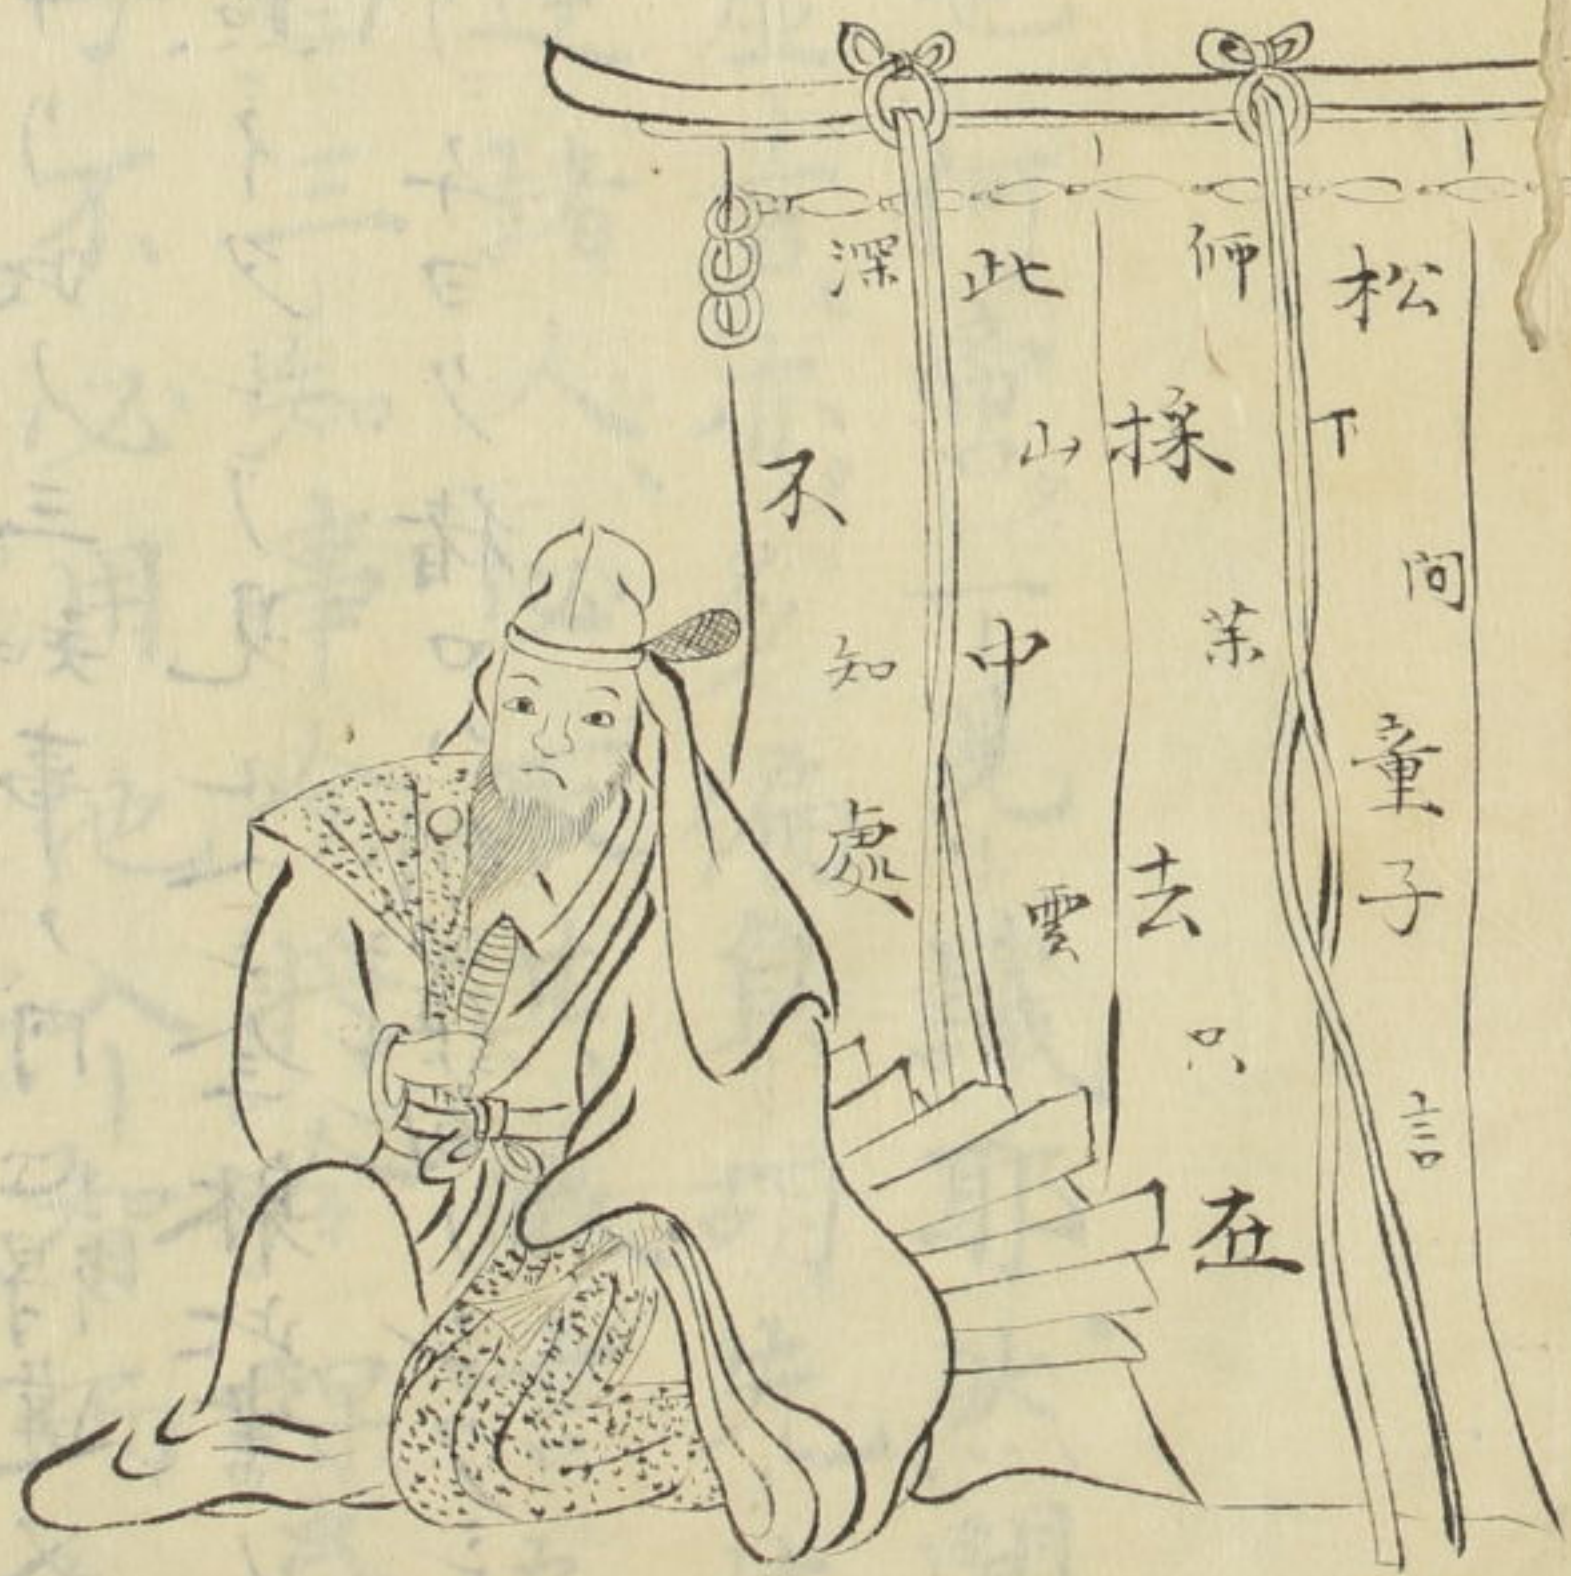 松下問童子言
师採藥去只在
此山中雲
深不知處